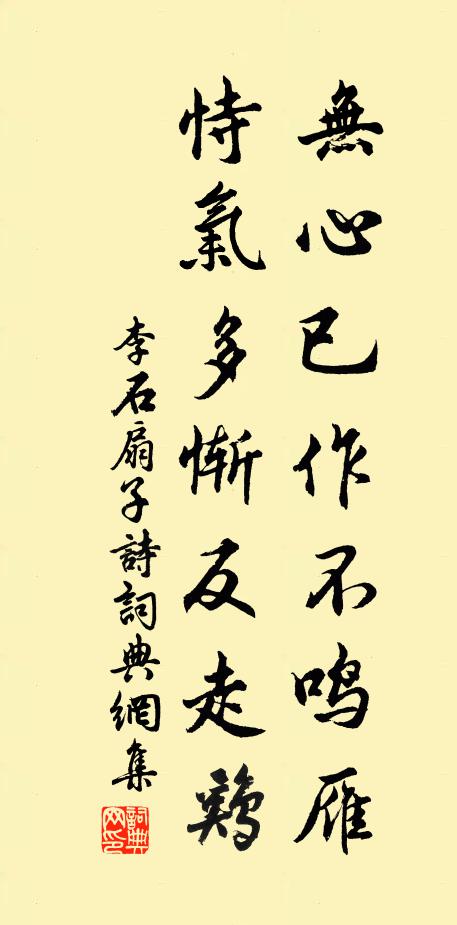 無心已作不鸣雁
恃氣多慚反走鷄
李石扇子詩詞典網集
詞典
网印